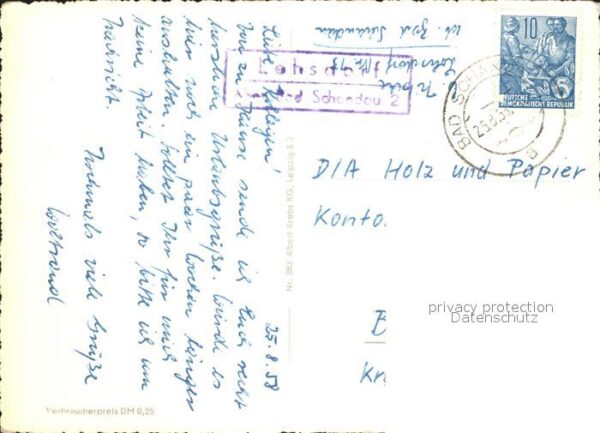 25.8.58
Liebe Kollegen!
Von zu Hause sende ich Euch recht
herzliche Urlaubsgrüße. Würde es
hier noch ein paar Wochen länger
aushalten. Solltet Ihr für mich
keine Arbeit haben, so bitte ich um
Nachricht.
Nochmals viele Grüße
Waltraud
Verbraucherpreis DM 0,25
Nr. 863 Albert Krebs KG, Leipzig S 3
Lohsdorf
Bad Schandau 2
Lohsdorf Nr.
üb. Bad Schandau
10
5
DEUTSCHE
DEMOKRATISCHE REPUBLIK
BAD SCHA
25.8.58
DIA Holz und Papier
Konto.
B
Kr
privacy protection
Datenschutz